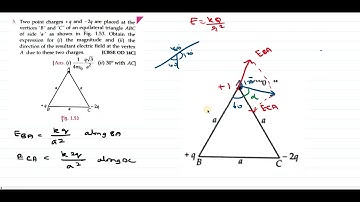 3. Two point charges +q and -2q are placed at the
vertices 'B' and 'C' of an equilateral triangle ABC
of side 'a' as shown in Fig. 1.53. Obtain the
expression for (i) the magnitude and (ii) the
direction of the resultant electric field at the vertex
A due to these two charges. [CBSE OD 14C]
[Ans. (i) 1/4πε₀ · q√3/a² (ii) 30° with AC]
A
a a
+q -2q
B a C
Fig. 1.53
E_BA = kq/a² along BA
E_CA = k2q/a² along
E = kQ/r²
60
120
E_BA
+1
120
60
α
E_CA
a a
+q -2q
B a C